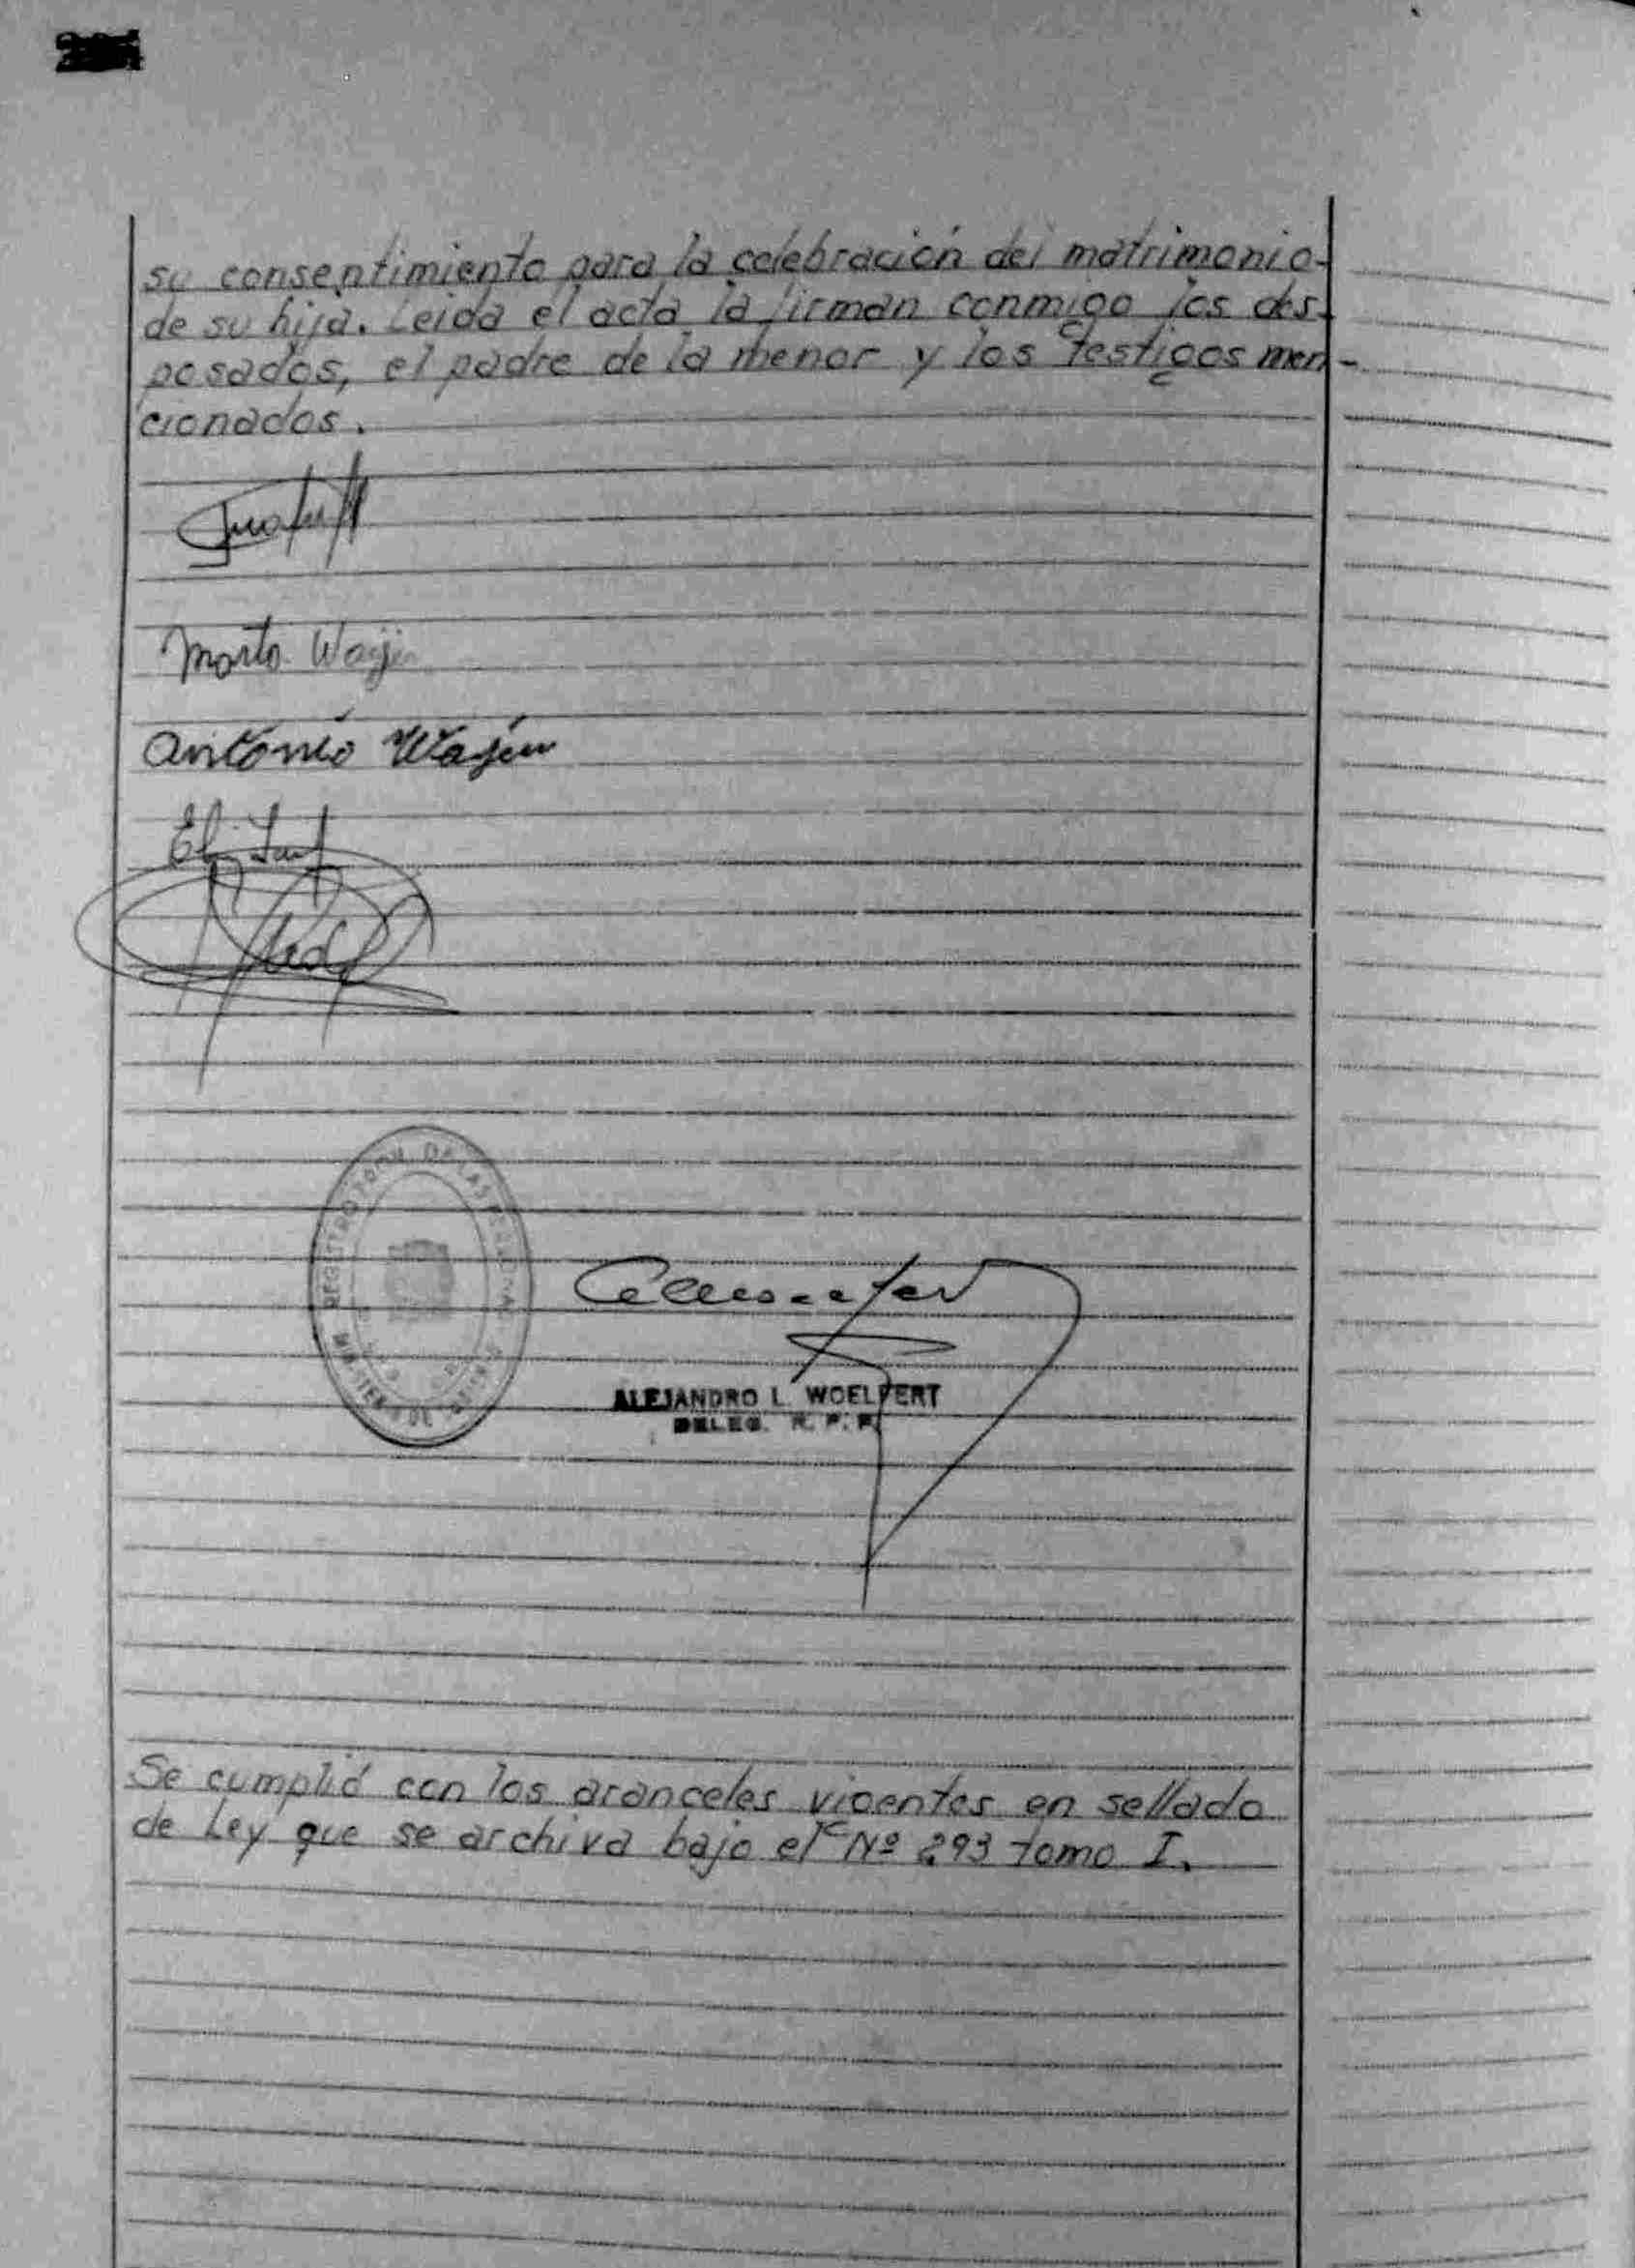 su consentimiento para la celebración del matrimonio-
de su hija. Leida el acta la firman conmigo los des-
posados, el padre de la menor y los testigos men-
cionados.
Marta
Antonio
REGISTRO DE LAS
ALEJANDRO L. WOELFERT
DELEG. R. P. P.
Se cumplió con los aranceles vigentes en sellado
de Ley que se archiva bajo el Nº 293 tomo I.